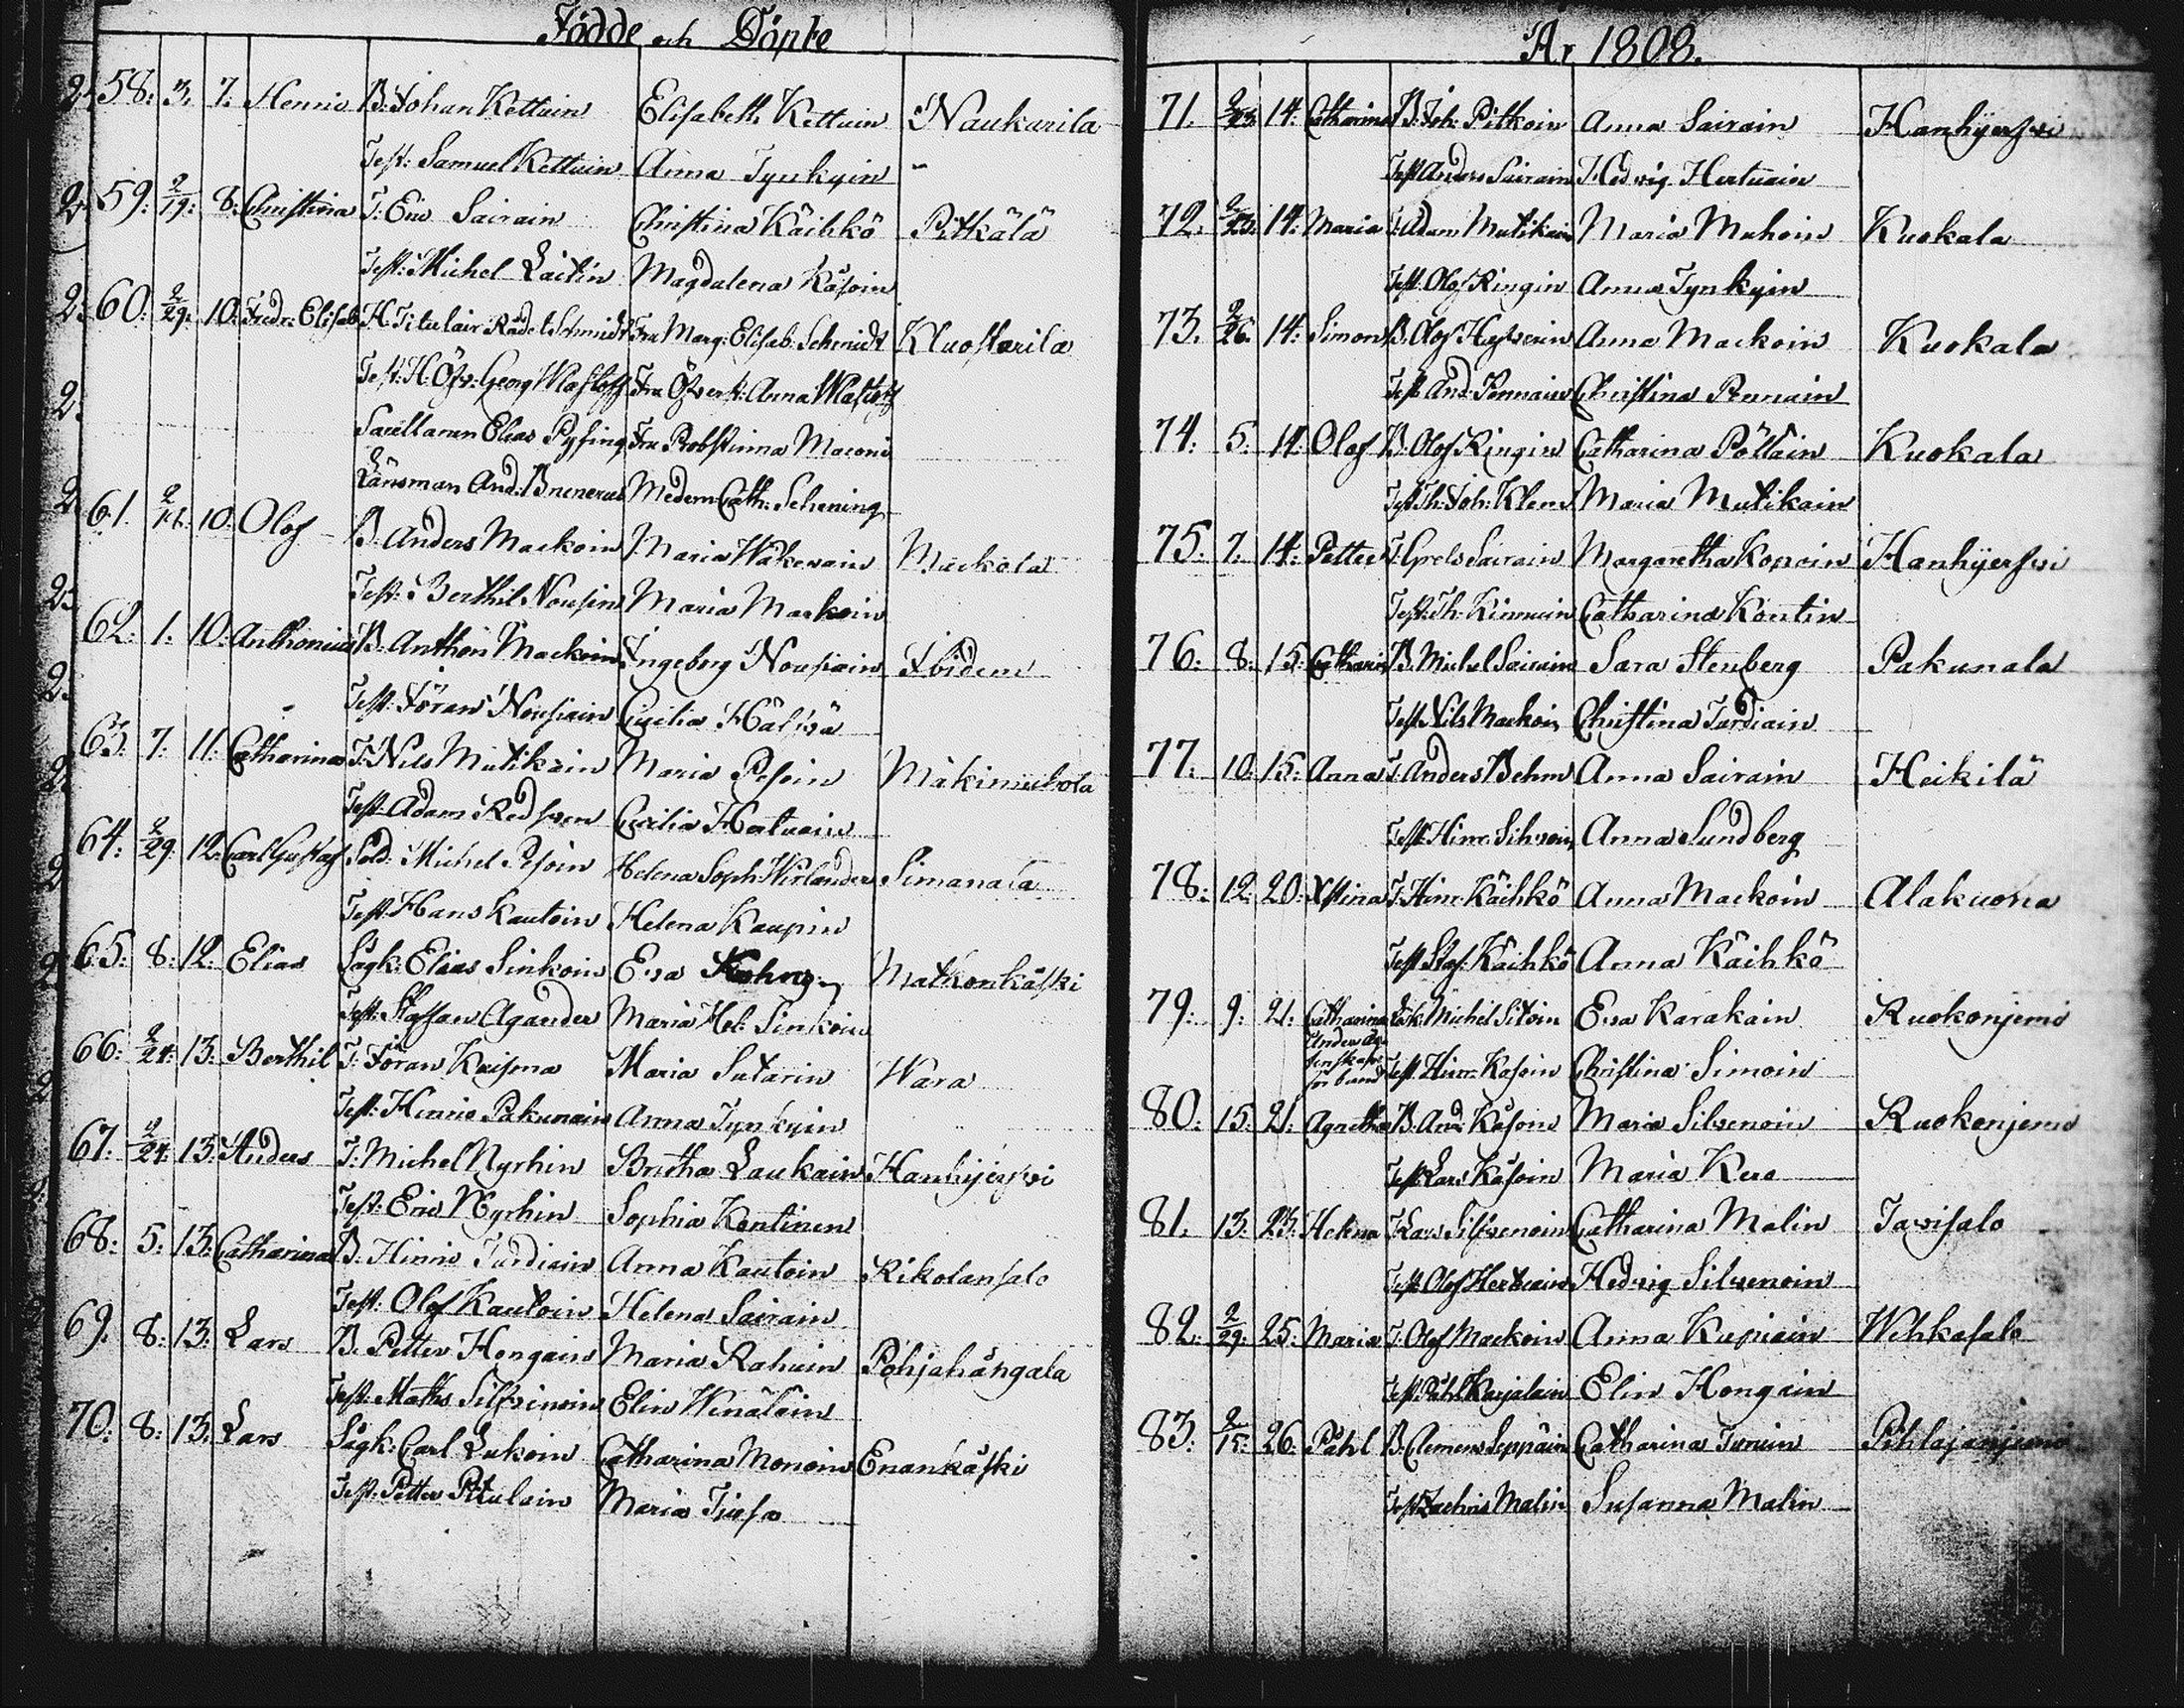 Födde och Döpte
58. 3. 7. Henric B. Johan Kettuin Elisabeth Kettuin Naukarila
Test: Samuel Kettuin Anna Tynkyin
59. 2/19. 8. Christina T: Eric Sairain Christina Käihkö Pitkälä
Test: Michel Laitin Magdalena Käsoin
60. 2/29. 10. Fredr: Elisab. H. Titulair Rådet Schmidt Fru Marg: Elisab: Schmidt Kluostarila
Test: H. Öfv: Georg Masloff Fru Öfverst: Anna Masloff
Sacellanen Elias Pyfing Fru Probstinna Maconi
Länsman And: Brunerus Medem: Cath: Schening
61. 10. Olof B. Anders Mackoin Maria Wäkewain Mackola
Test: Berthil Nousin Maria Mackoin
62. 1. 10. Anthonius B. Anthon Mackoin Ingeborg Nousiain Ibidem
Test: Jöran Nousiain Cecilia Hälwä
63. 7. 11. Catharina T: Nils Mutikain Maria Pesoin Mäkimuhola
Test: Adam Redsven Cecilia Hertuain
64. 2/29. 12. Carl Gustaf Sold: Michel Pesoin Helena Soph: Wirlander Simanala
Test: Hans Kautoin Helena Kaupin
65. 8. 12. Elias Sågk: Elias Sinkoin Eva Matkonkåski
Test: Staffan Agander Maria Hel: Sinkoin
66. 2/24. 13. Berthil T: Jöran Kaisma Maria Sutarin Wara
Test: Henric Pakunain Anna Tynkyin
67. 2/24. 13. Anders T: Michel Nyrhin Britha Laukain Hanhijerfvi
Test: Eric Nyrhin Sophia Kontinen
68. 5. 13. Catharina B: Hinric Turdiain Anna Kautoin Rikolansalo
Test: Olof Kautoin Helena Sairain
69. 8. 13. Lars B. Petter Hongain Maria Rahuin Pohjahångala
Test: Maths Silfvenoin Elin Winäläin
70. 8. 13. Lars Sågk: Carl Lukoin Catharina Monoin Enankåski
Test: Petter Pitulain Maria Tiusa
År 1808.
71. 2/23. 14. Catharina B. Joh: Pitkoin Anna Sairain Hanhijerfvi
Test Anders Sairain Hedvig Hertuain
72. 2/23. 14. Maria T: Adam Mutikain Maria Muhoin Kuokala
Test: Olof Ringin Anna Tynkyin
73. 2/26. 14. Simon B. Olof Hyvärin Anna Mackoin Kuokala
Test And: Pennain Christina Pennain
74. 5. 14. Olof B. Olof Ringin Catharina Pöllain Kuokala
Test Th: Joh: Klem Maria Mutikain
75. 7. 14. Petter T: Grels Sairain Margaretha Kopoin Hanhijerfvi
Test: Th: Kinnuin Catharina Kontin
76. 8. 15. Catharin B. Michel Sairain Sara Stenberg Pakunala
Test Nils Mackoin Christina Turdiain
77. 10. 15. Anna T: Anders Behm Anna Sairain Heikilä
Test: Hinr: Sihvoin Anna Sundberg
78. 12. 20. Xstina T: Hinr: Käihkö Anna Mackoin Alakuona
Test Staf: Käihkö Anna Käihkö
79. 9. 21. Catharina Michel Siloin Eva Karakain Ruokonjemi
Under
Test: Hinr: Kasoin Christina Simoin
80. 15. 21. Agnetha B. And: Käsoin Maria Silvenoin Ruokonjemi
Test Lars Käsoin Maria Kero
81. 13. 23. Helena T: Lars Silfvenoin Catharina Malin Tavisalo
Test Olof Hertuain Hedvig Silvenoin
82. 2/29. 25. Maria T: Olof Mackoin Anna Kupiain Wehkasalo
Test: Påhl Karjalain Elin Hongain
83. 2/15. 26. Påhl B. Clemens Seppäin Catharina Turuin Pihlajanjemi
Test Zachris Malin Susanna Malin